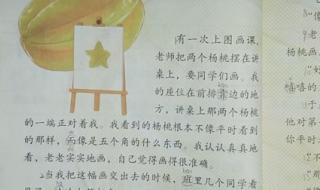 有一次上图画课，
老师把两个杨桃摆在讲
桌上，要同学们画。我
的座位在前排靠边的地
方，讲桌上那两个杨桃
的一端正对着我。我看到的杨桃根本不像平时看到
的那样，而像是五个角的什么东西。我认认真真地
看，老老实实地画，自己觉得画得很准确。
当我把这幅画交出去的时候，班里几个同学看